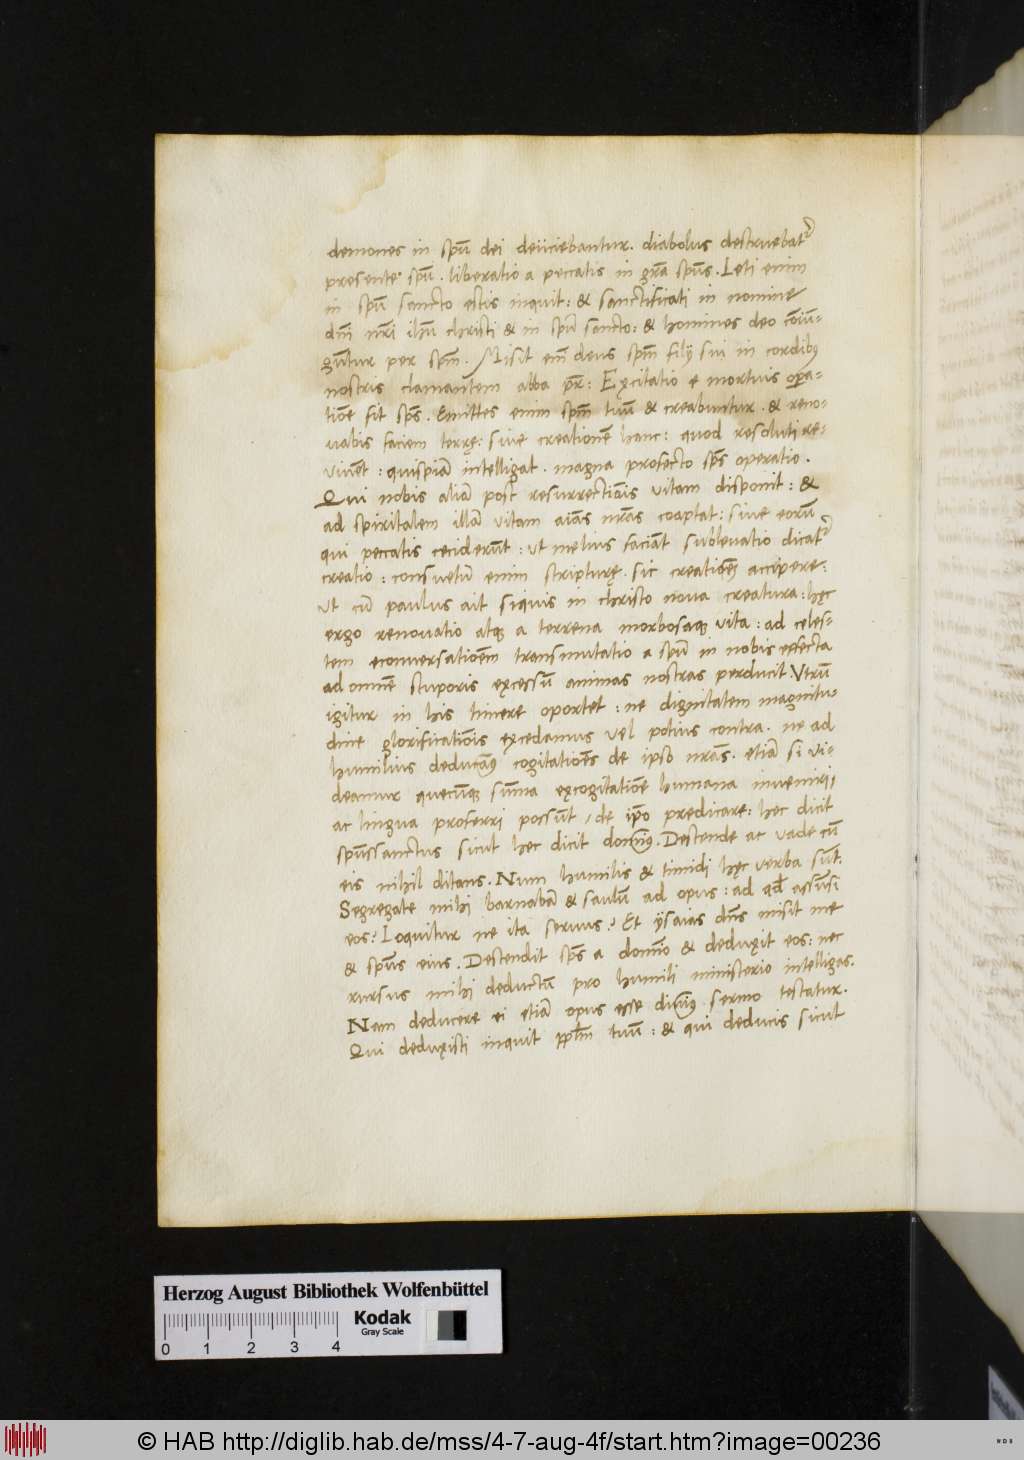 demones in spū dei deiiciebantur. diabolus destruebat᷑
presente spū. liberatio a peccatis in grā spūs. Loti enim
in spū sancto estis inquit: & sanctificati in nomine
dn̄i nr̄i ihū christi & in spū sancto: & homines deo cōiū-
gūtur per spm̄. Misit em̄ deus spm̄ filij sui in cordibꝰ
nostris clamantem abba pr̄: Excitatio e mortuis opa-
tiōe fit sps̄. Emittes enim spm̄ tuū & creabuntur. & reno-
uabis faciem terrę: siue creationē hanc: quod resoluti re-
viuēt: quispiā intelligat. magna profecto sps̄ operatio.
Qui nobis aliā post resurrectiōis vitam disponit: &
ad spiritalem illā vitam aīas nr̄as cooptat: siue eorū
qui peccatis ceciderūt: ut melius faciāt subleuatio dicat᷑
creatio: consuetū enim scripturę. sic creationē accipere:
ut cū paulus ait siquis in christo noua creatura: hęc
ergo renouatio atqꝫ a terrena morbosaqꝫ vita: ad celes-
tem econuersatiōem transmutatio a spū in nobis effecta
ad omnē stuporis excessū animas nostras perducit. Vtrū
igitur in his timere oportet: ne dignitatem magnitu-
dine glorificatiōis excedamus vel potius contra. ne ad
humilius deducamꝰ cogitatiōes de ipso nr̄as. etiā si vi-
deamur quecūqꝫ sūma excogitatiōe humana inueniri,
ac lingua proferri possūt, de ip̄o predicare: hec dicit
spūssanctus sicut hec dicit dominꝰ. Descende ac vade cū
eis nihil ditans. Num humilis & timidi hęc verba sūt.
Segregate mihi barnabā & saulū ad opus: ad qd̄ assūsi
eos? Loquitur ne ita seruus? Et ysaias dn̄s misit me
& spūs eius. Descendit sps̄ a domīo & deduxit eos: nec
rursus mihi deductū pro humili ministerio intelligas.
Nam deducere ei etiā opus esse diuinꝰ sermo testatur.
Qui deduxisti inquit pplm̄ tuū: & qui deducis sicut
Herzog August Bibliothek Wolfenbüttel
Kodak
Gray Scale
0 1 2 3 4
© HAB http://diglib.hab.de/mss/4-7-aug-4f/start.htm?image=00236